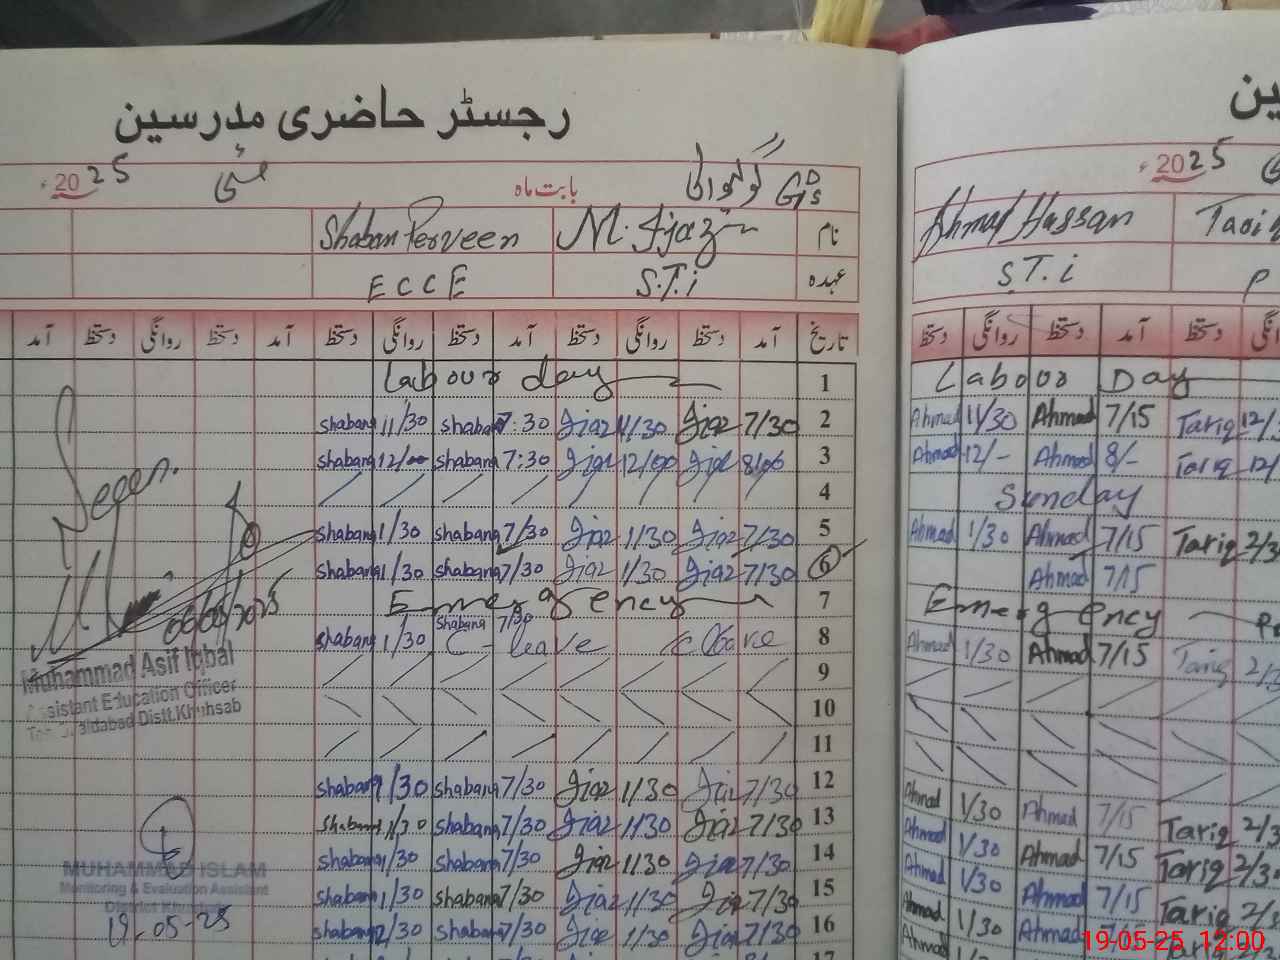 رجسٹر حاضری مدرسین
2025ء مئی بابت ماہ
نام M. Ijaz Shaban Perveen
عہدہ S.T.i ECCE
تاریخ آمد دستخط روانگی دستخط آمد دستخط روانگی دستخط آمد دستخط روانگی دستخط آمد
1 Labour day
2 7/30 Ijaz 11/30 Ijaz 7:30 shabana 11/30 shabana
3 Ijaz 12/00 Ijaz 7:30 shabana 12/00 shabana
4
5 7/30 Ijaz 1/30 Ijaz 7/30 shabana 1/30 shabana
6 7/30 Ijaz 1/30 Ijaz 7/30 shabana 1/30 shabana
7 Emergency
8 C-leave 7/30 Shabana 1/30 shabana
9
10
11
12 7/30 Ijaz 1/30 Ijaz 7/30 shabana 1/30 shabana
13 7/30 Ijaz 1/30 Ijaz 7/30 shabana 1/30 shabana
14 7/30 Ijaz 1/30 Ijaz 7/30 shabana 1/30 shabana
15 7/30 Ijaz 1/30 Ijaz 7/30 shabana 1/30 shabana
16 7/30 Ijaz 1/30 Ijaz 7/30 shabana shabana
17
Seen.
Muhammad Asif Iqbal
Assistant Education Officer
Distt.Khushab
MUHAMMAD ISLAM
Monitoring & Evaluation Assistant
District Khushab
19-05-25
2025ء
Ahmad Hassan Tariq
S.T.i P
دستخط روانگی دستخط آمد دستخط
Labour Day
Ahmad 11/30 Ahmad 7/15 Tariq
Ahmad 12/- Ahmad 8/- Tariq
Sunday
Ahmad 1/30 Ahmad 7/15 Tariq
Ahmad 7/15
Emergency
Ahmad 1/30 Ahmad 7/15 Tariq
Ahmad 1/30 Ahmad 7/15 Tariq
Ahmad 1/30 Ahmad 7/15 Tariq
Ahmad 1/30 Ahmad 7/15 Tariq
Ahmad 1/30 Ahmad Tariq
Ahmad
19-05-25 12:00